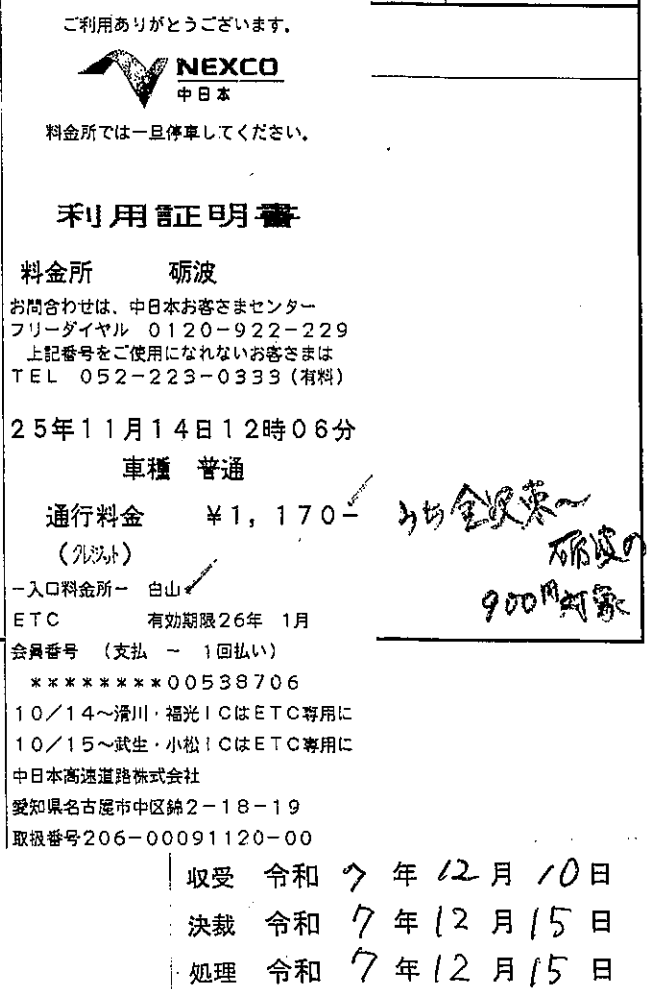 ご利用ありがとうございます。
NEXCO
中日本
料金所では一旦停車してください。
利用証明書
料金所 砺波
お問合わせは、中日本お客さまセンター
フリーダイヤル 0120-922-229
上記番号をご使用になれないお客さまは
TEL 052-223-0333(有料)
25年11月14日12時06分
車種 普通
通行料金 ¥1,170-
(クレジット)
うち金沢東〜
砺波の
900円対象
-入口料金所- 白山
ETC 有効期限26年 1月
会員番号 (支払 ~ 1回払い)
********00538706
10/14~滑川・福光ICはETC専用に
10/15~武生・小松ICはETC専用に
中日本高速道路株式会社
愛知県名古屋市中区錦2-18-19
取扱番号206-00091120-00
収受 令和 7 年 12 月 10 日
決裁 令和 7 年 12 月 15 日
処理 令和 7 年 12 月 15 日